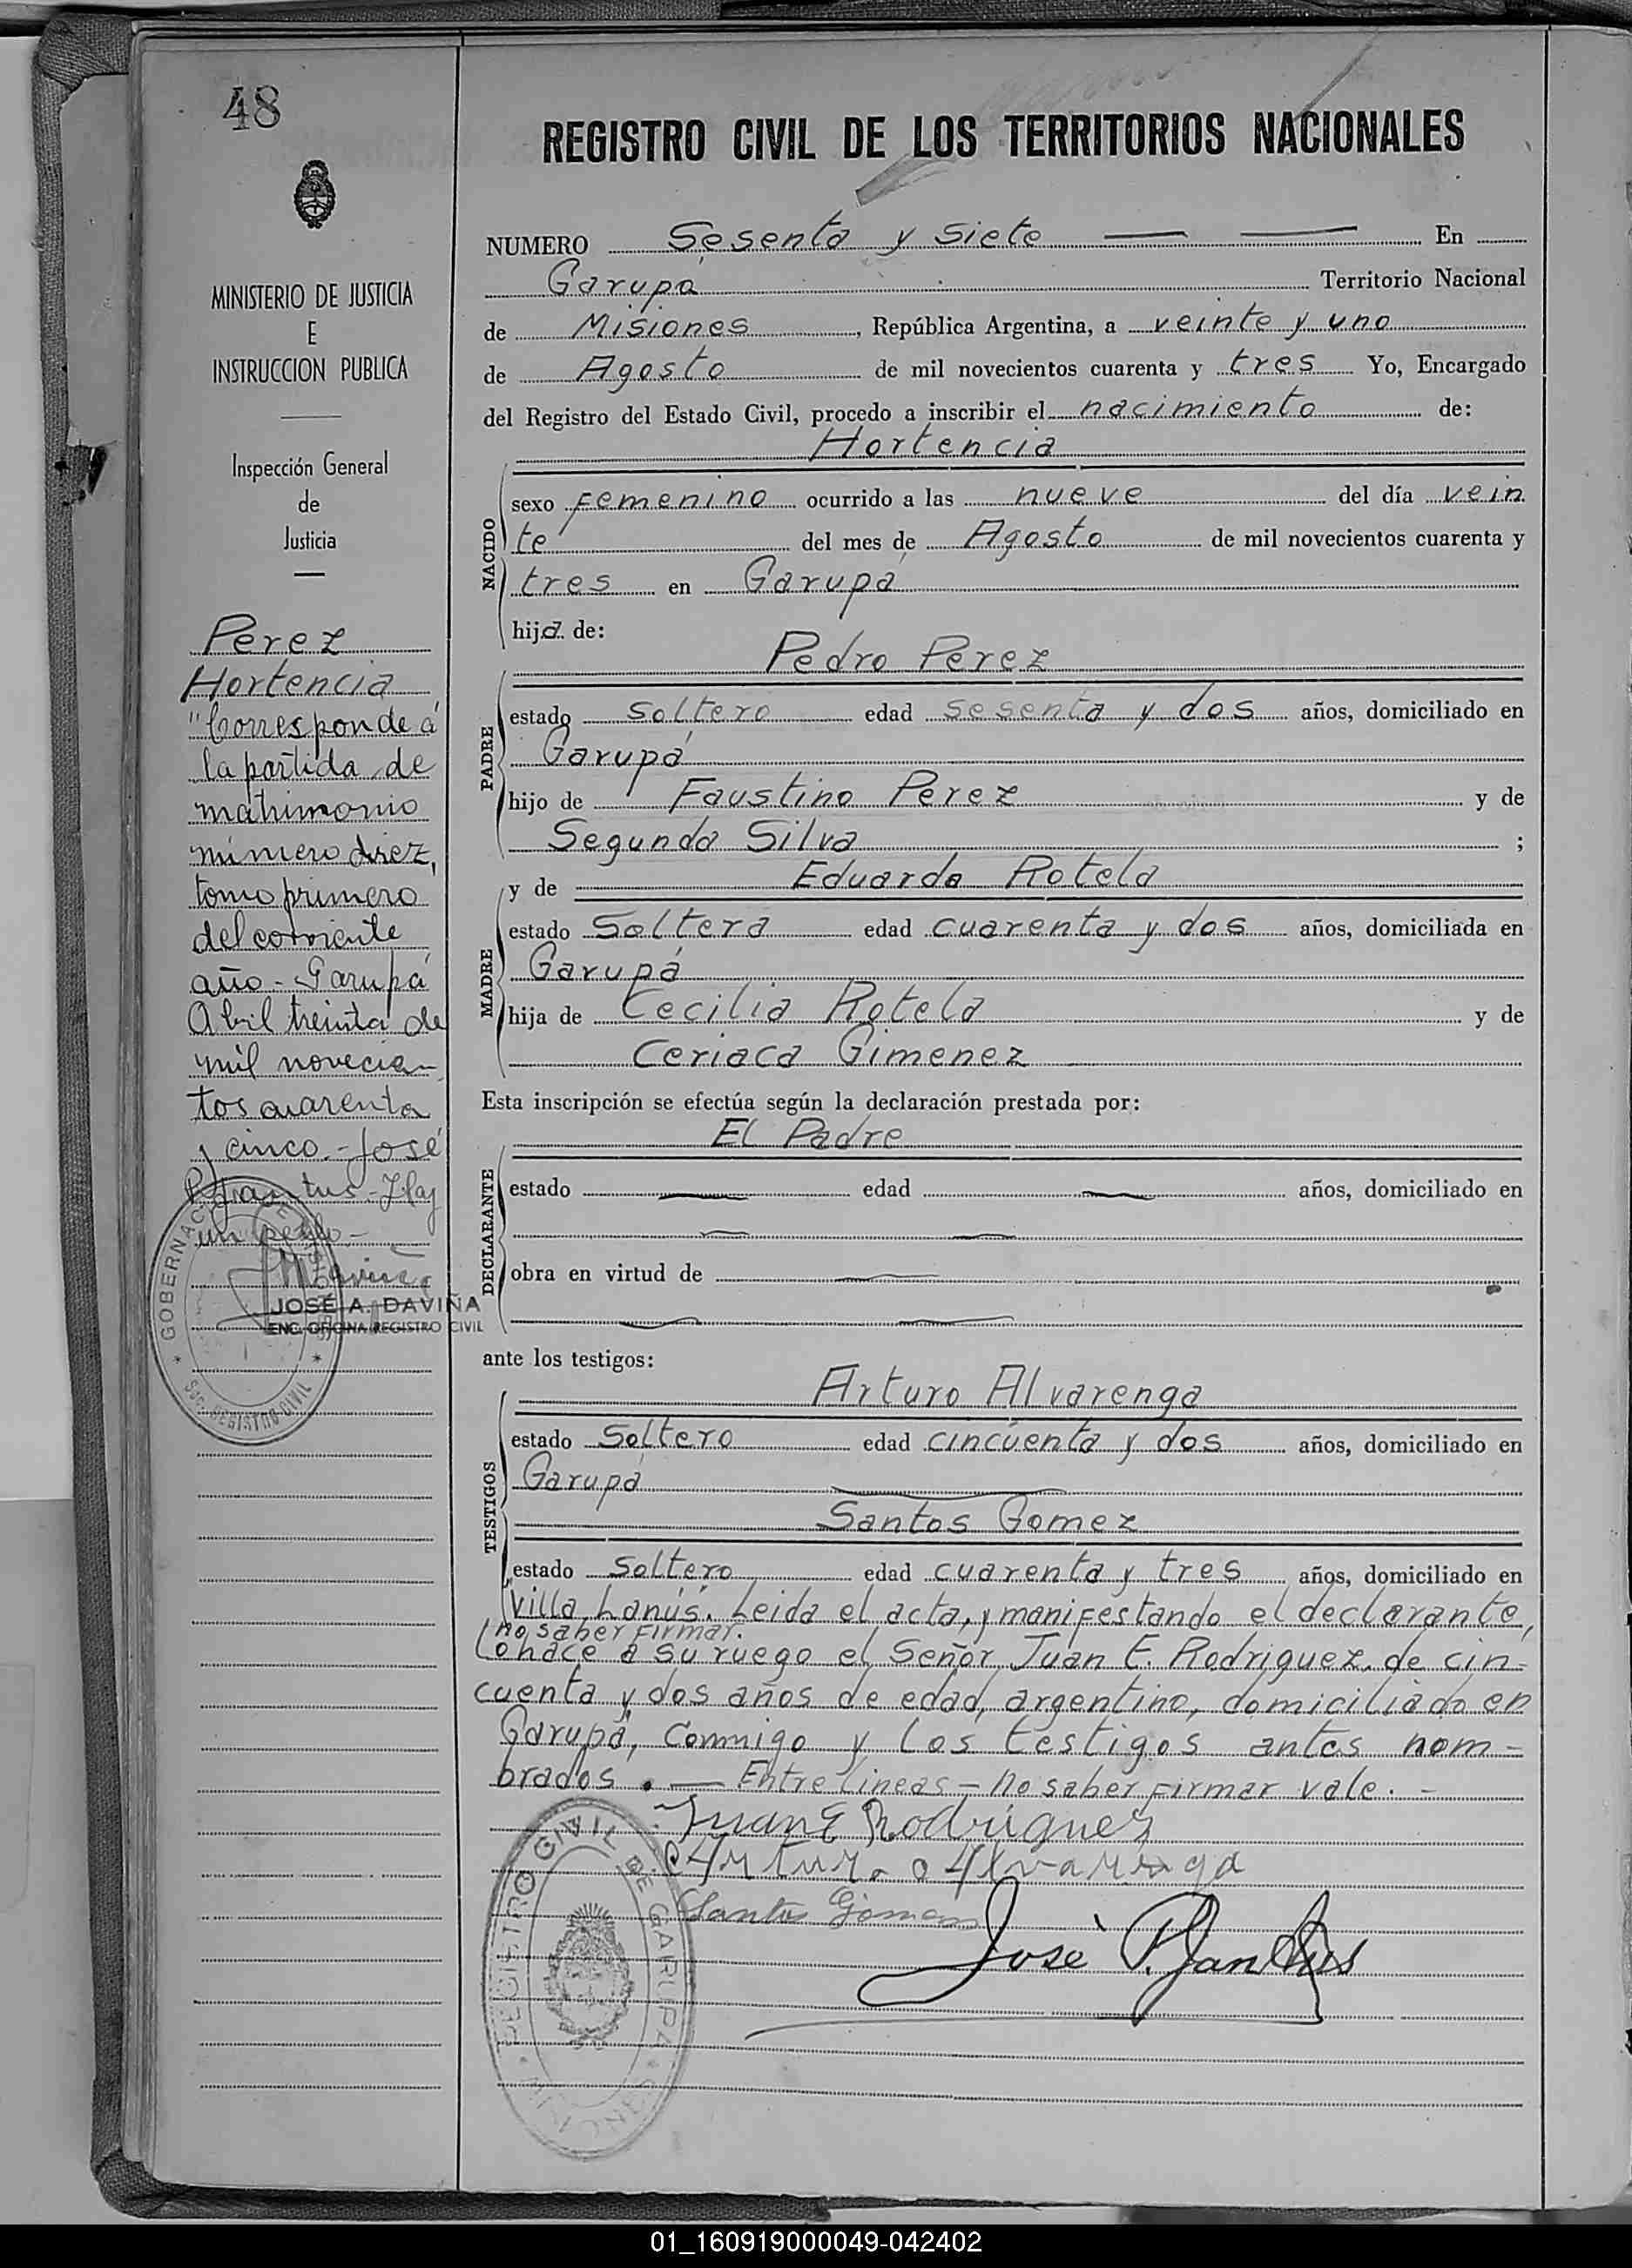 48
REGISTRO CIVIL DE LOS TERRITORIOS NACIONALES
MINISTERIO DE JUSTICIA
E
INSTRUCCION PUBLICA
Inspección General
de
Justicia
Perez
Hortencia
"Corresponde á
la partida de
matrimonio
número diez,
tomo primero
del corriente
año - Garupá
Abril treinta de
mil novecien
tos cuarenta
y cinco. - José
P. Jantus - Hay
un sello -
JOSÉ A. DAVIÑA
ENC. OFICINA REGISTRO CIVIL
GOBERNAC
SUC. REGISTRO CIVIL
NUMERO Sesenta y siete En
Garupá Territorio Nacional
de Misiones, República Argentina, a veinte y uno
de Agosto de mil novecientos cuarenta y tres Yo, Encargado
del Registro del Estado Civil, procedo a inscribir el nacimiento de:
Hortencia
NACIDO
sexo femenino ocurrido a las nueve del día vein
te del mes de Agosto de mil novecientos cuarenta y
tres en Garupá
hija de:
Pedro Perez
PADRE
estado soltero edad sesenta y dos años, domiciliado en
Garupá
hijo de Faustino Perez y de
Segunda Silva ;
y de Eduarda Rotela
MADRE
estado Soltera edad cuarenta y dos años, domiciliada en
Garupá
hija de Cecilia Rotela y de
Ceriaca Gimenez
Esta inscripción se efectúa según la declaración prestada por:
El Padre
DECLARANTE
estado edad años, domiciliado en
obra en virtud de
ante los testigos:
Arturo Alvarenga
TESTIGOS
estado Soltero edad cincuenta y dos años, domiciliado en
Garupá
Santos Gomez
estado Soltero edad cuarenta y tres años, domiciliado en
Villa Lanús. Leida el acta, y manifestando el declarante,
no saber firmar.
Lo hace a su ruego el Señor Juan E. Rodriguez, de cin-
cuenta y dos años de edad, argentino, domiciliado en
Garupá, conmigo y los testigos antes nom-
brados. — Entre lineas - no saber firmar vale. -
Juan E Rodriguez
Arturo Alvarenga
Santos Gómez
José P. Jantus
REGISTRO CIVIL DE GARUPA
01_160919000049-042402